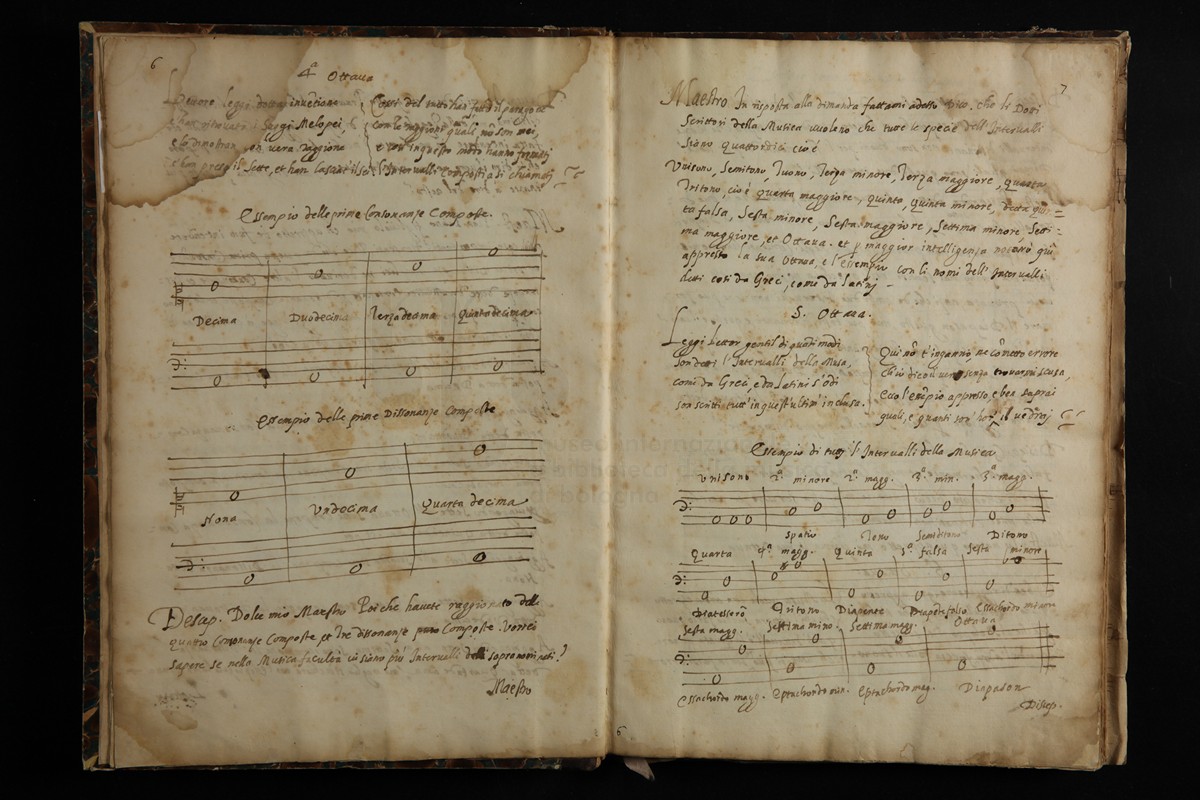 6
4ª Ottava
leggi
i saggi Melopei,
ed in vera raggione
preso il sette, et han lasciat il
Così del tutto han
con le raggioni quali no son mei,
e con in questo modo hanno fermati
l'Intervalli composti così chiamati
Essempio delle prime Consonanze Composte.
Decima Duodecima Terzadecima Quintadecima
Essempio delle prime Dissonanze Composte
Nona Undecima Quarta decima
Discep. Dolce mio Maestro Poi che havete raggionato delle
quattro Consonanze Composte, et tre dissonanze Composte. Vorrei
sapere se nella Musica facultà ci siano più Intervalli delli sopranominati?
Maestro
7
Maestro In risposta alla dimanda fattami adesso dico, che li Dotti
Scrittori della Musica vuolano che tutte le specie dell'Intervalli
siano quattordici cioè
Unisono, Semitono, Tuono, Terza minore, Terza maggiore, quarta
Tritono, cioè quarta maggiore, quinta, quinta minore, detta quin=
ta falsa, Sesta minore, Sesta maggiore, Settima minore, Setti=
ma maggiore, et Ottava. et p maggior intelligenza notarò quì
appresso la sua Ottava, e l'essempio con li nomi dell'Intervalli
detti così da Greci, come da latinj
5. Ottava.
Leggi lettor gentil di quanti modi
son detti l'Intervalli della Musa,
come da Greci, e da latini s'odi
son scritti tutt'in quest'ultim' inclusa.
Qui nõ t'inganni, ne cõmetto errore
senza trovarmi scusa,
Ecco l'esempio appresso, e ben saprai
quali, e quanti son il vedraj
Essempio di tutti l'Intervalli della Musica
Unisono 2ª minore 2ª magg. 3ª min. 3ª magg.
Spatio Tono Semiditono Ditono
Quarta 4ª magg. Quinta 5ª falsa Sesta minore
Diatesserõ Tritono Diapente Essachordo minore
Sesta magg. Settima mino. Settima magg. Ottava
Essachordo magg. Eptachordo min. Eptachordo mag. Diapason
Discep.
6
museo internazionale
biblioteca della
di bologna